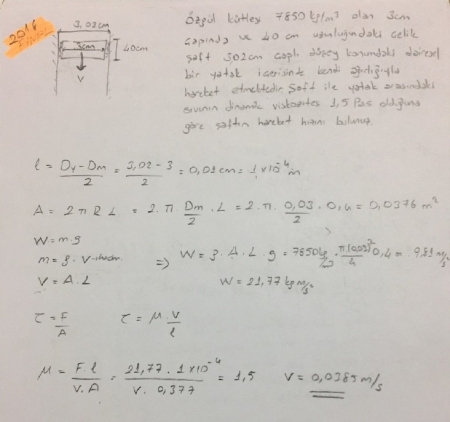 2016
3,02cm
3cm
40cm
V
Özgül kütlesi 7850 kg/m³ olan 3cm
çapında ve 40 cm uzunluğundaki çelik
şaft 3,02cm çaplı düşey konumdaki dairesel
bir yatak içerisinde kendi ağırlığıyla
hareket etmektedir. Şaft ile yatak arasındaki
sıvının dinamik viskozitesi 1,5 Pas olduğuna
göre şaftın hareket hızını bulunuz.
l = Dy-Dm/2 = 3,02-3/2 = 0,01cm = 1×10⁻⁴ m
A = 2πRL = 2.π.Dm/2.L = 2.π.0,03/2.0,4 = 0,0376 m²
W = m.g
m = ρ.V => W = ρ.A.L.g = 7850 kg/m³.π(0,03)²/4 0,4 = 9,81 m/s²
V = A.L W = 21,77 kg m/s²
τ = F/A τ = μ.V/l
μ = F.l/V.A = 21,77.1×10⁻⁴/V.0,377 = 1,5 V = 0,0385 m/s